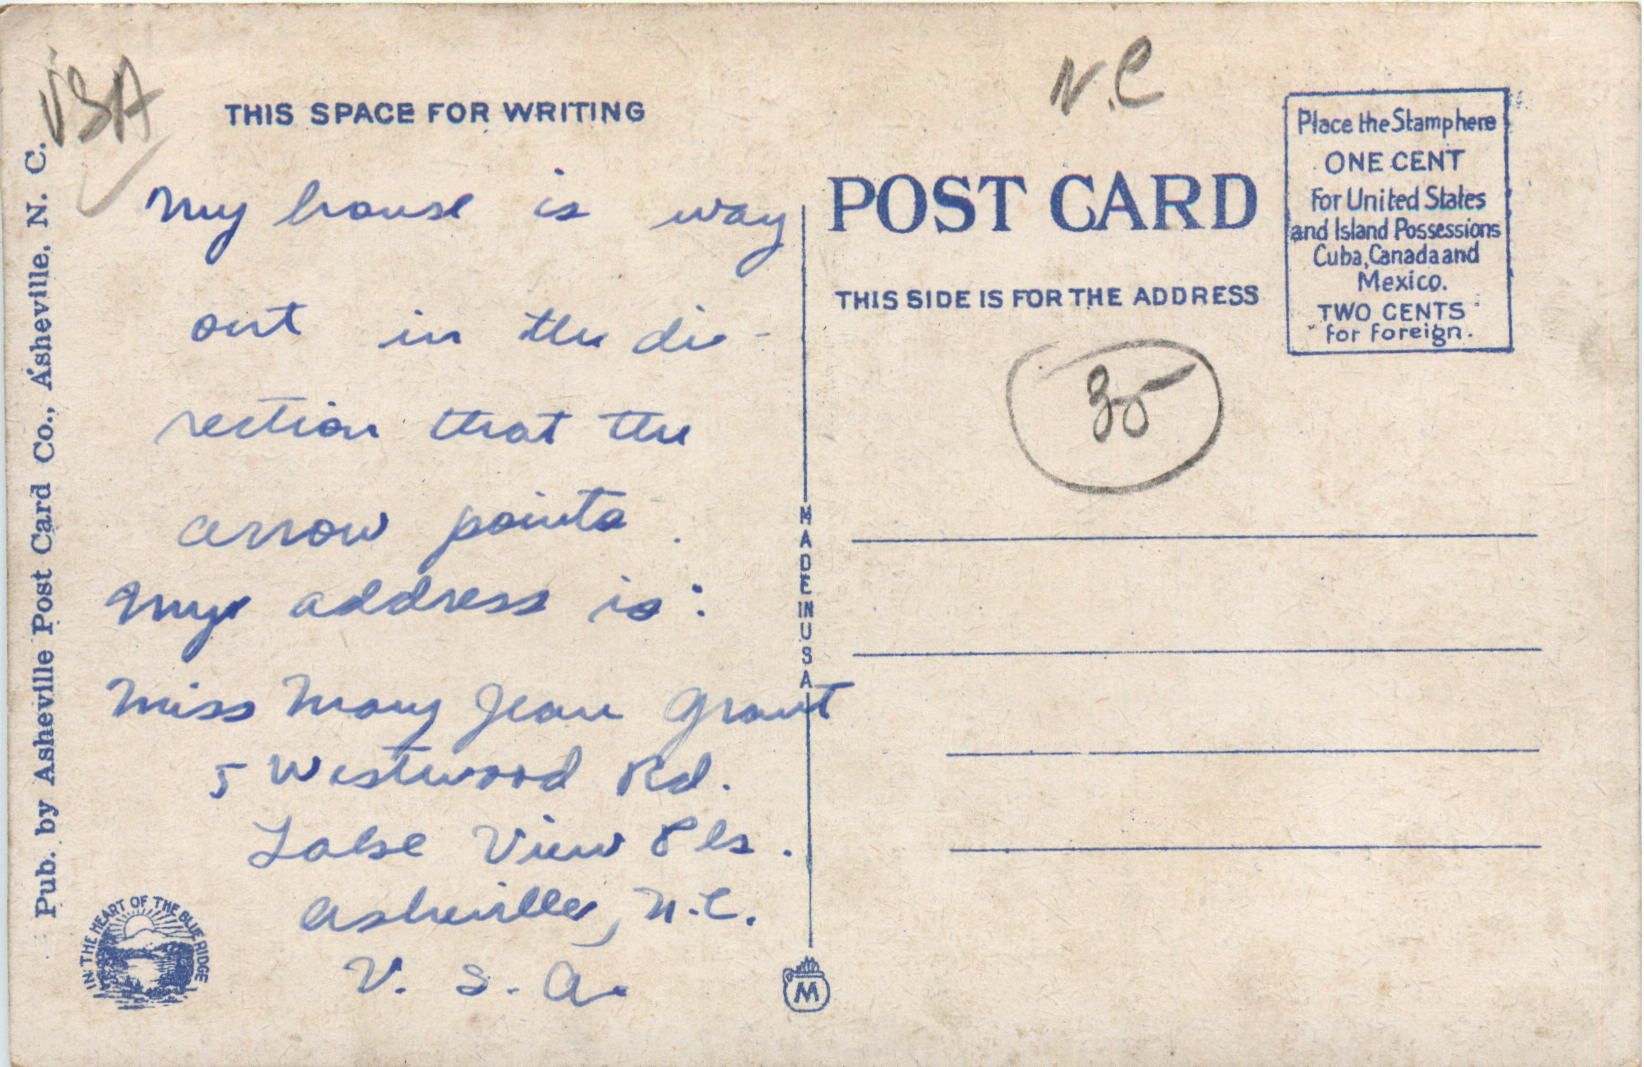 USA
THIS SPACE FOR WRITING
My house is way
out in the di-
rection that the
arrow points.
My address is:
Miss Mary Jean Grant
5 Westwood Rd.
Lake View Pk.
Asheville, N.C.
U. S. A.
Pub. by Asheville Post Card Co., Asheville, N. C.
IN THE HEART OF THE BLUE RIDGE
MADE IN USA
M
N.C
POST CARD
THIS SIDE IS FOR THE ADDRESS
Place the Stamp here
ONE CENT
For United States
and Island Possessions
Cuba, Canada and
Mexico.
TWO CENTS
for Foreign.